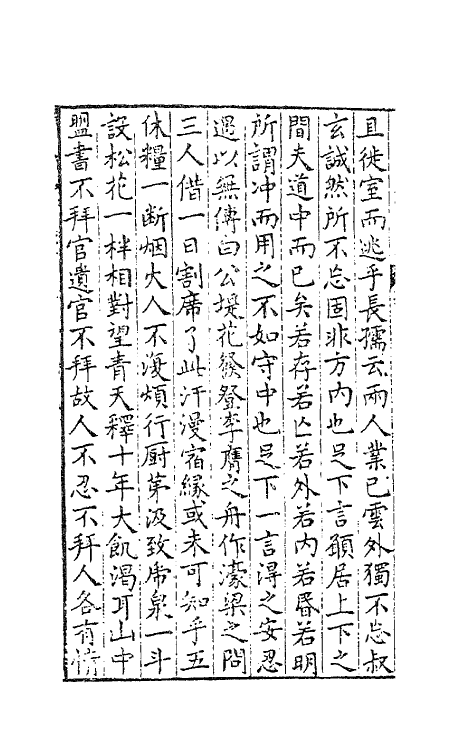 且徙室而逃乎長孺云兩人業已雲外獨不忘叔
玄誠然所不忘固非方內也足下言願居上下之
間夫道中而已矣若存若亡若外若內若昏若明
所謂冲而用之不如守中也足下一言得之安忍
遇以無傳白公堤花發登李膺之舟作濠梁之問
三人借一日割席了此汗漫宿緣或未可知乎五
休糧一斷烟火人不復煩行厨第汲致帋泉一斗
設松花一柈相對望青天釋十年大飢渴耳山中
盟書不拜官遺官不拜故人不忍不拜人各有情